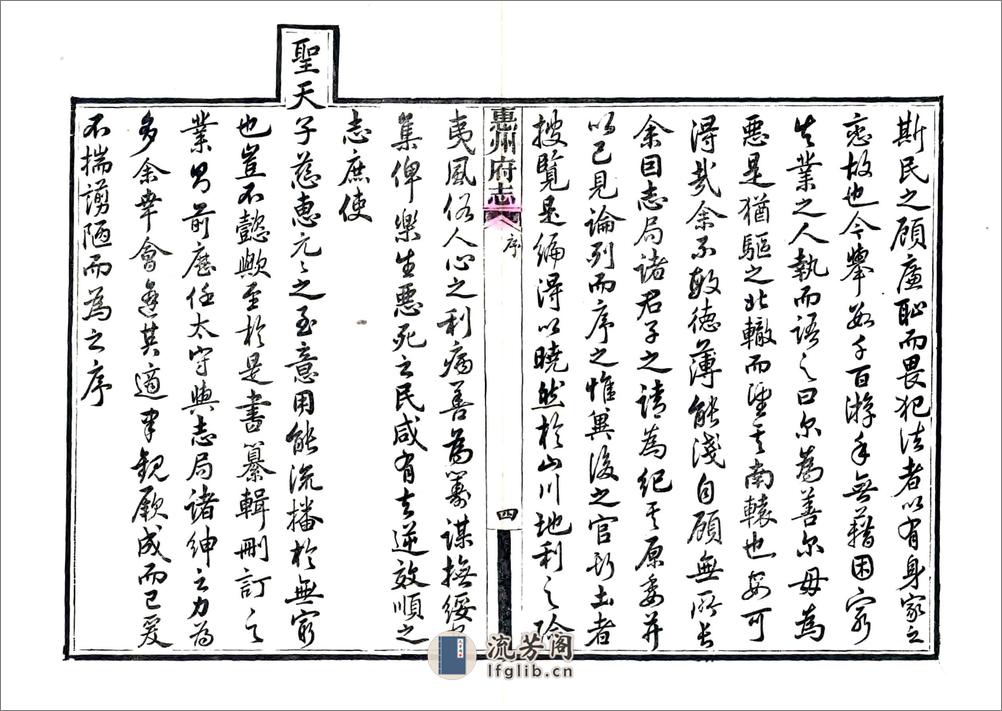 斯民之顧廉恥而畏犯法者以有身家之
戀故也今舉數千百游手無藉困窮
失業之人執而語之曰尔為善尔毋為
惡是猶驅之北轍而望其南轅也安可
得哉余不敏德薄能淺自顧無所長
余因志局諸君子之請為紀其原委并
以己見論列而序之惟冀後之官斯土者
披覽是編得以曉然於山川地利之險
惠州府志
序
四
夷風俗人心之利病善為籌謀撫綏
集俾樂生惡死之民咸有去逆效順之
志庶使
聖天子慈惠元元之至意用能流播於無窮
也豈不懿歟至於是書纂輯刪訂之
業則前歷任太守與志局諸紳之力為
多余幸會逢其適車觀厥成而已爰
不揣譾陋而為之序
流芳閣
lfglib.cn